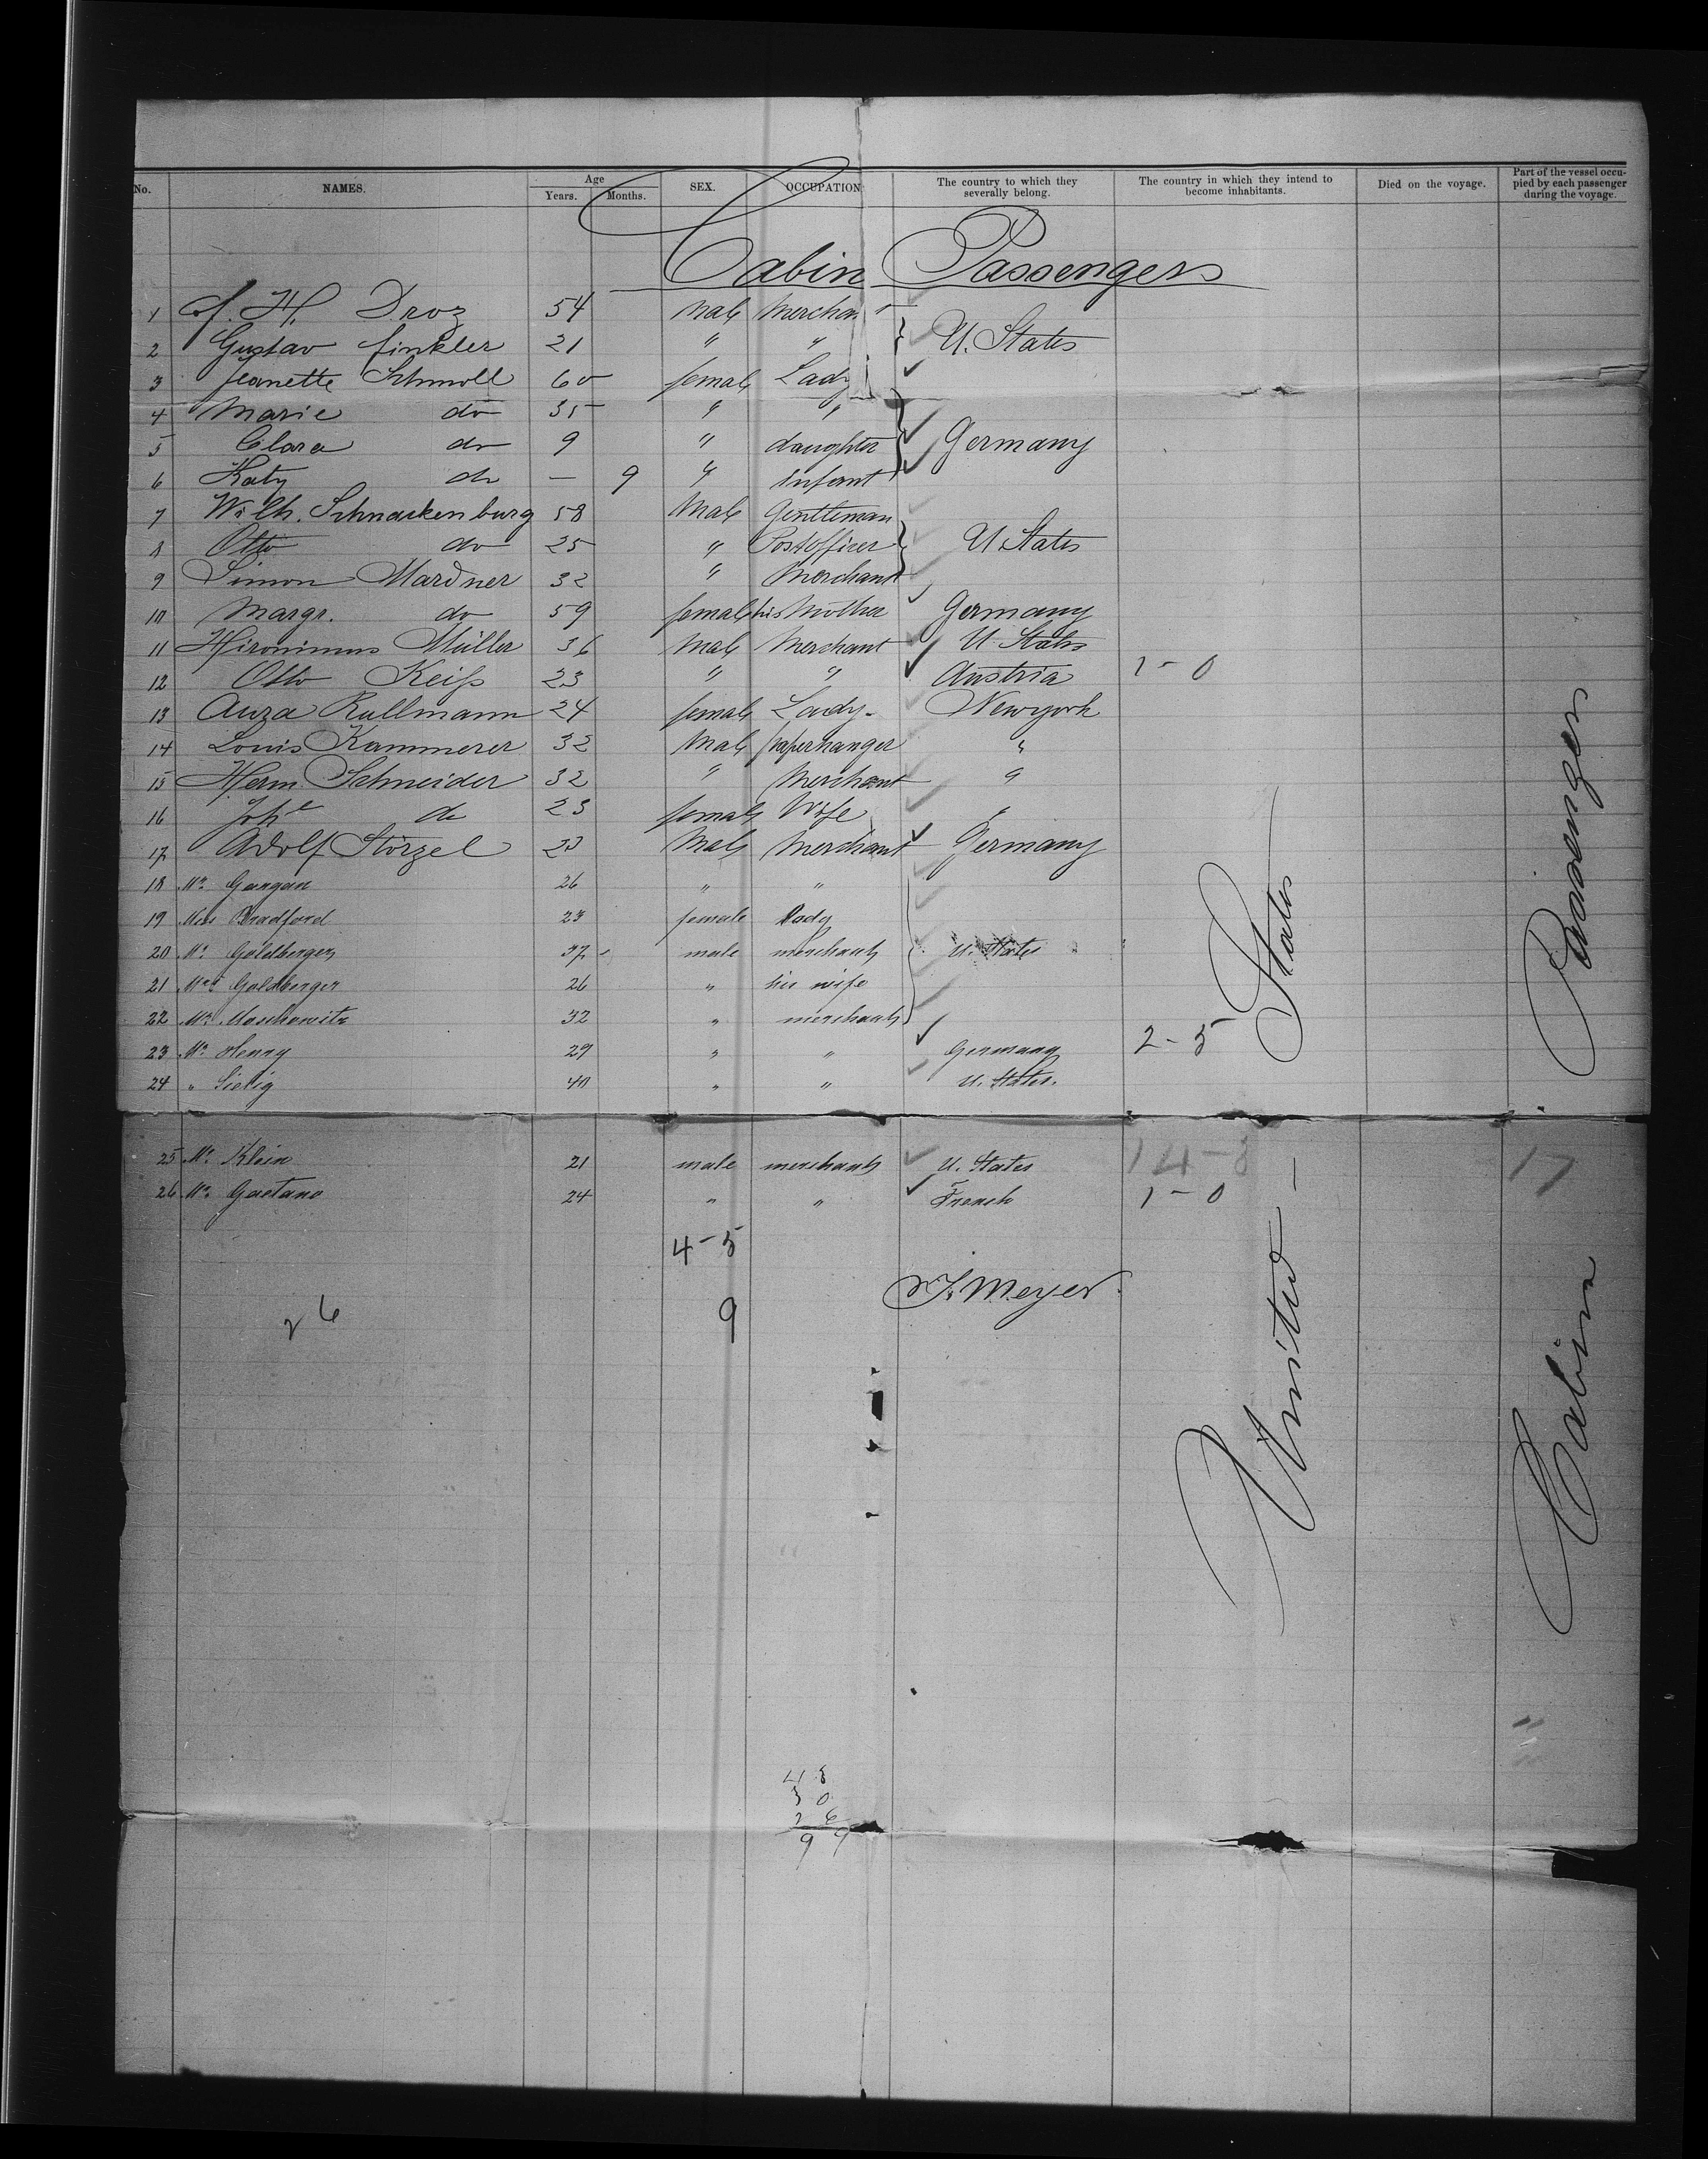 No. NAMES. Age Years. Months. SEX. OCCUPATION. The country to which they severally belong. The country in which they intend to become inhabitants. Died on the voyage. Part of the vessel occupied by each passenger during the voyage.
Cabin Passengers
1 H. Droz 54 Male Merchant
2 Gustav Finkler 21 " " U. States
3 Jeanette Schmoll 60 female Lady
4 Marie do 35 " "
5 Clara do 9 " daughter Germany
6 Katy do — 9 " Infant
7 Wilh. Schnackenburg 58 Male Gentleman
8 Otto do 25 " Postofficer U States
9 Simon Mardner 32 " Merchant
10 Margr. do 59 female his Mother Germany
11 Hironimus Müller 36 Male Merchant U. States
12 Otto Keiß 23 " " Austria 1-0
13 Rullmann 24 female Lady Newyork
14 Louis Kammerer 32 Male paperhanger "
15 Herm. Schneider 32 " Merchant "
16 Joh.e do 23 female Wife "
17 Adolf Störzel 23 Male Merchant Germany
18 Mr. Gangan 26 " "
19 Miss Bradford 23 female Lady
20 Mr. Goldberger 37 male merchants U. States
21 Mrs Goldberger 26 " his wife
22 Mr. Moschowitz 32 " merchants
23 Mr. Henry 29 " " Germany 2-5
24 " Sielig 40 " " U. States.
25 Mr. Klein 21 male merchants U. States 14-8 17
26 Mr. Gaetano 24 " " French 1-0
4-5
J. Meyer
26
9
United States
Cabin Passengers
26